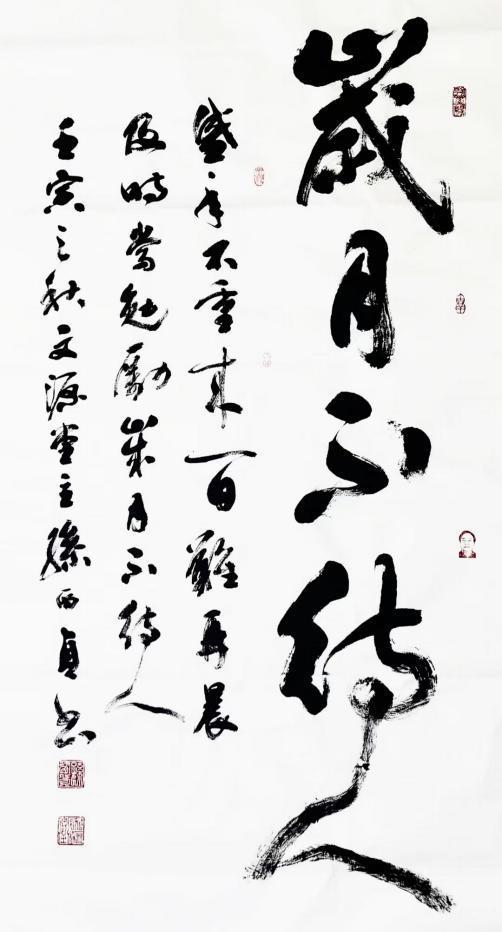 歲月不待人
盛年不重来一日難再晨
及時當勉勵歲月不待人
壬寅之秋文源堂主貞书